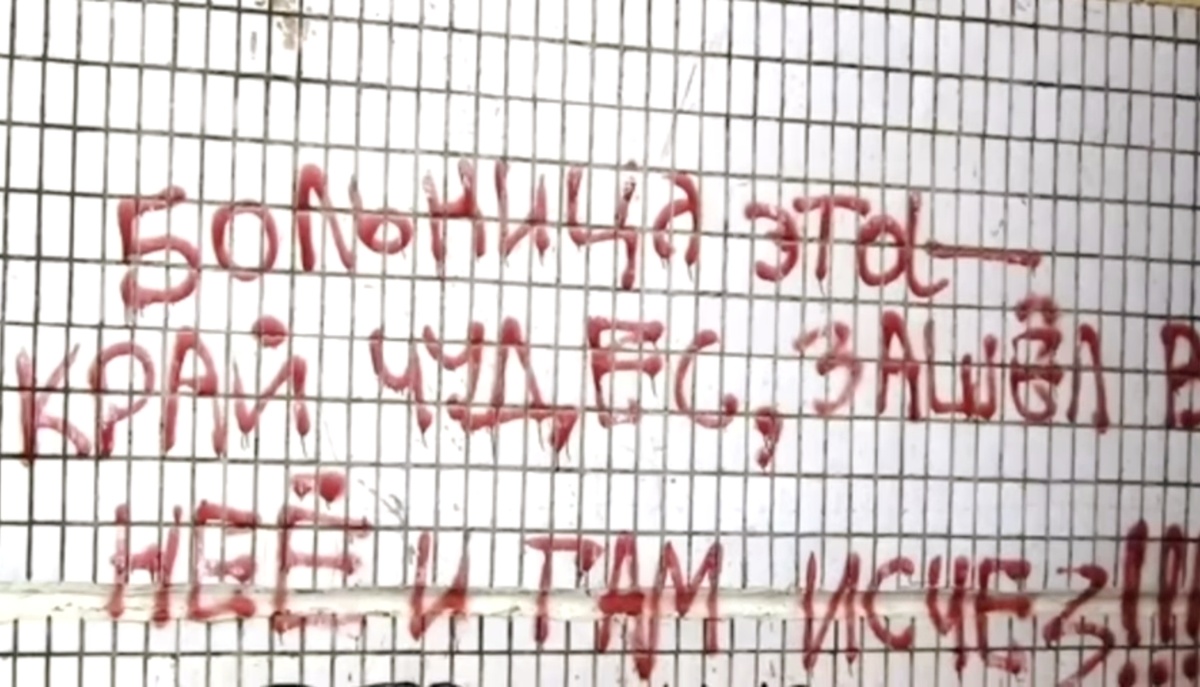 БОЛЬНИЦА ЭТА —
КРАЙ ЧУДЕС, ЗАШЁЛ В
НЕЁ И ТАМ ИСЧЕЗ!!!